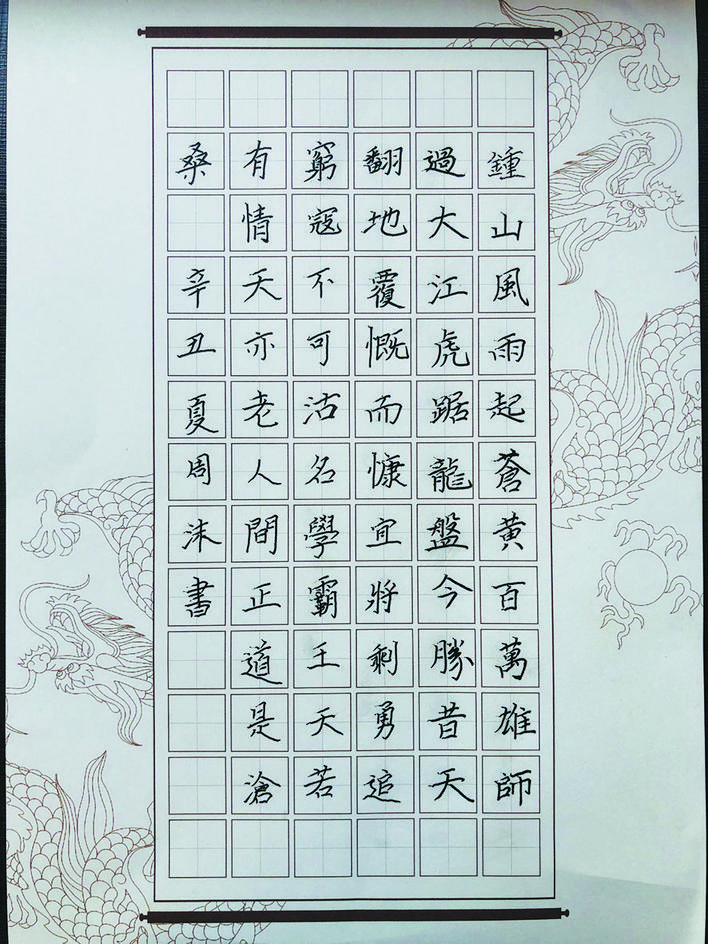 鍾山風雨起蒼黃百萬雄師
過大江虎踞龍盤今勝昔天
翻地覆慨而慷宜將剩勇追
窮寇不可沽名學霸王天若
有情天亦老人間正道是滄
桑 辛丑夏周沫書